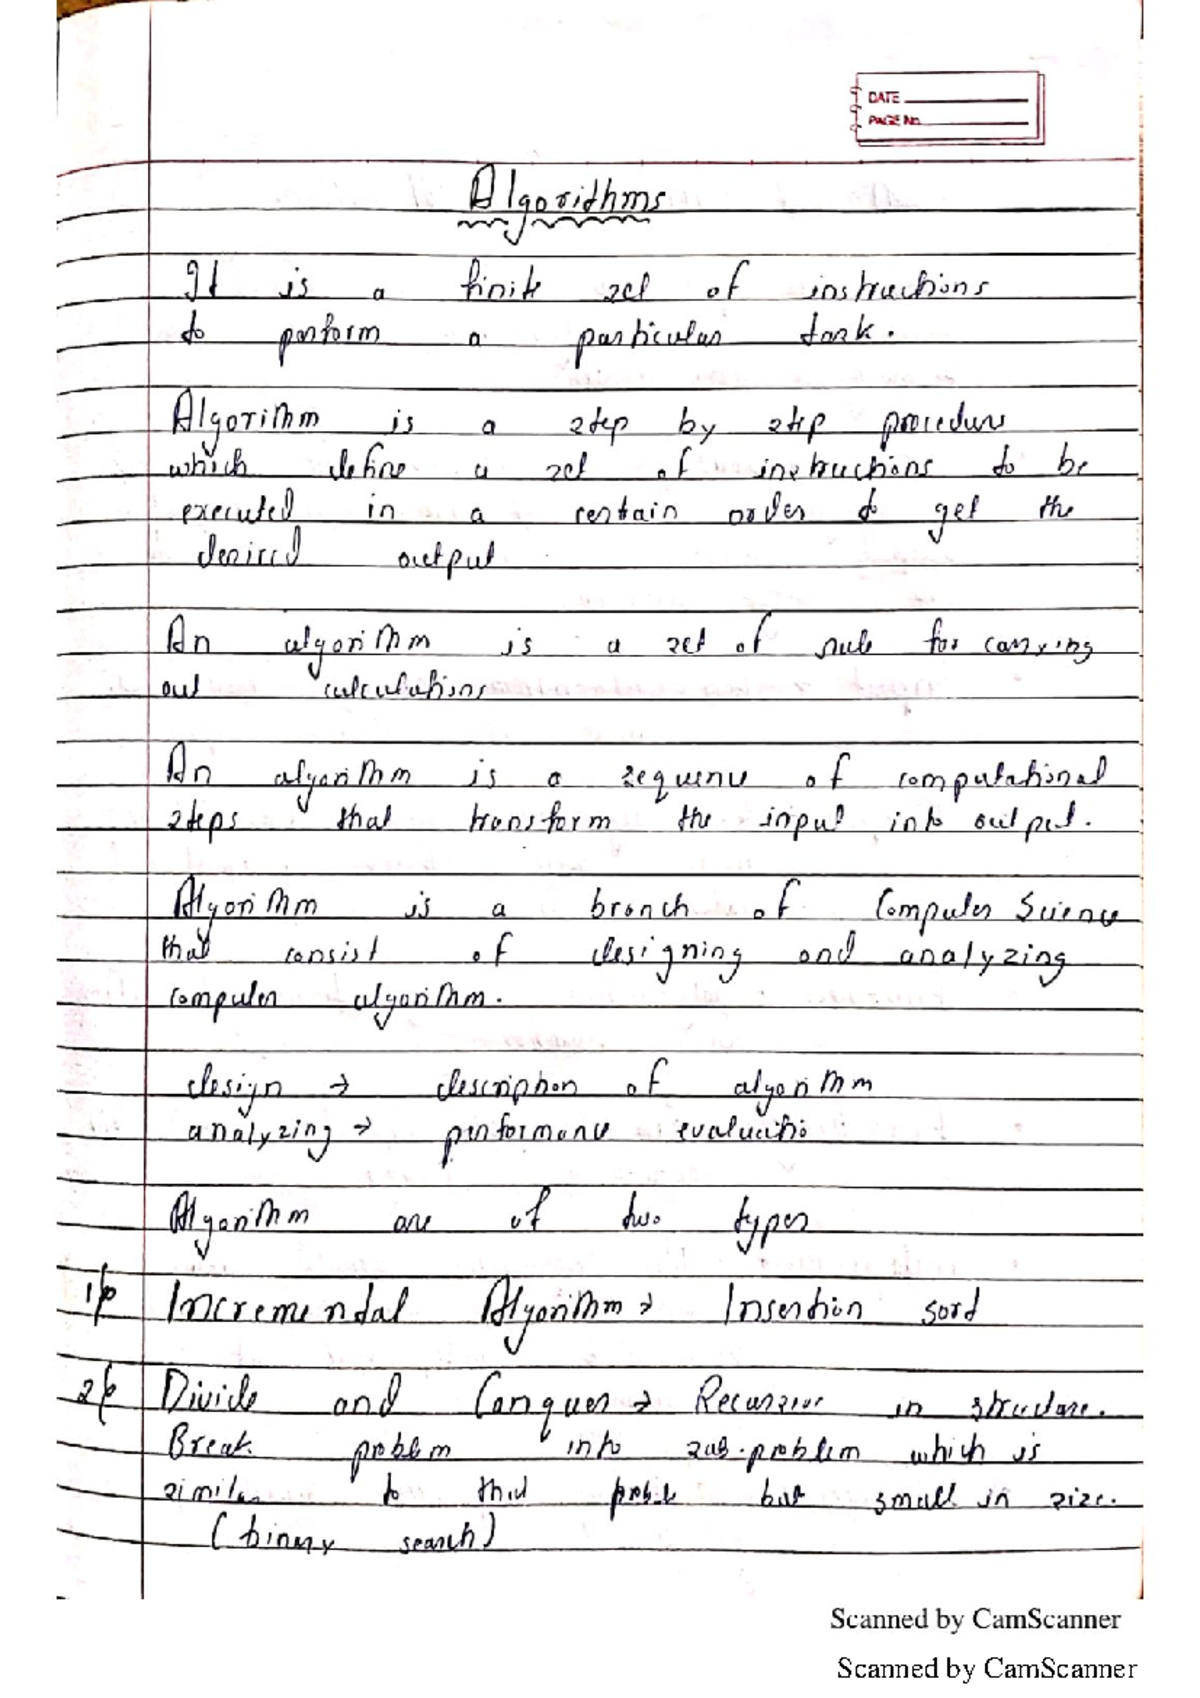 DATE
PAGE No.
Algorithms
It is a finite set of instructions
to perform a particular task.
Algorithm is a step by step procedure
which define a set of instructions to be
executed in a certain order to get the
desired output
An algorithm is a set of rule for carrying
out calculations
An algorithm is a sequence of computational
steps that transform the input into output.
Algorithm is a branch of Computer Science
that consist of designing and analyzing
computer algorithm.
design → description of algorithm
analyzing → performance evaluatio
Algorithm are of two types
1/ Incremental Algorithm → Insertion sort
2/ Divide and Conquer → Recursive in structure.
Break problem into sub-problem which is
similar to that proble but small in size.
(binary search)
Scanned by CamScanner
Scanned by CamScanner